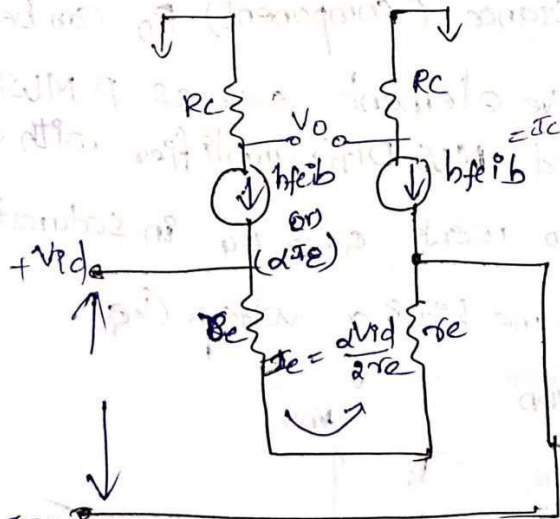 Rc
Rc
Vo
hfeib
hfeib = Ic
or
(αIe)
+Vid
re
Ie = αVid/2re
re